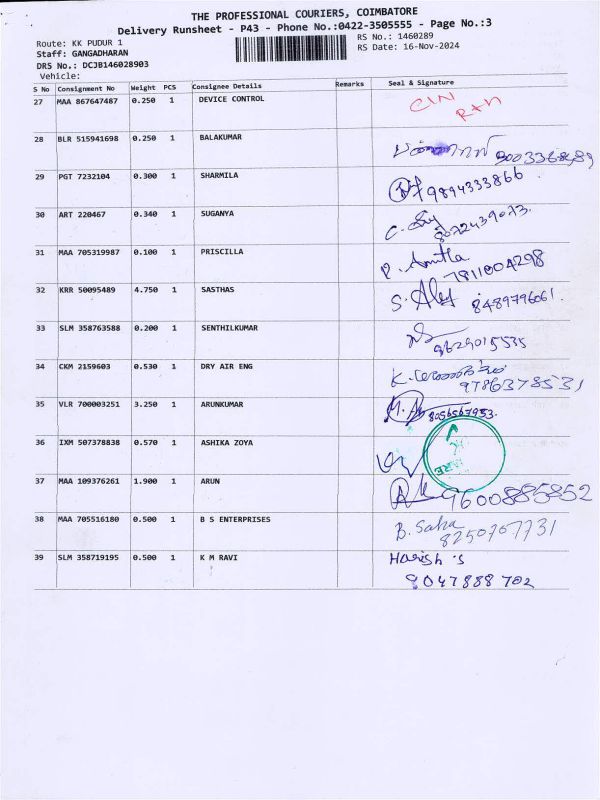 THE PROFESSIONAL COURIERS, COIMBATORE
Delivery Runsheet - P43 - Phone No.:0422-3505555 - Page No.:3
Route: KK PUDUR 1
RS No.: 1460289
Staff: GANGADHARAN
RS Date: 16-Nov-2024
DRS No.: DCJB146028903
Vehicle:
S No Consignment No Weight PCS Consignee Details Remarks Seal & Signature
27 MAA 867647487 0.250 1 DEVICE CONTROL
28 BLR 515941698 0.250 1 BALAKUMAR
29 PGT 7232104 0.300 1 SHARMILA 9894333866
30 ART 220467 0.340 1 SUGANYA
31 MAA 705319987 0.100 1 PRISCILLA 7811004298
32 KRR 50095489 4.750 1 SASTHAS 8489796061.
33 SLM 358763588 0.200 1 SENTHILKUMAR 9629015535
34 CKM 2159603 0.530 1 DRY AIR ENG 9786378531
35 VLR 700003251 3.250 1 ARUNKUMAR 8056567953.
36 IXM 507378838 0.570 1 ASHIKA ZOYA
37 MAA 109376261 1.900 1 ARUN 9600885852
38 MAA 705516180 0.500 1 B S ENTERPRISES B. Saha
8250767731
39 SLM 358719195 0.500 1 K M RAVI Harish s
9047888702